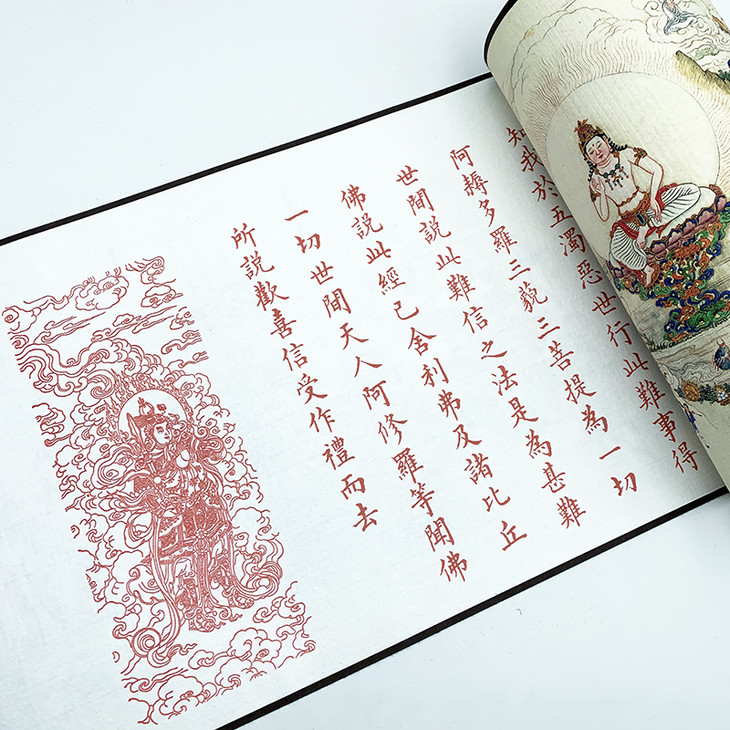 知我於五濁惡世行此難事得
阿耨多羅三藐三菩提為一切
世間說此難信之法是為甚難
佛說此經已舍利弗及諸比丘
一切世間天人阿修羅等聞佛
所說歡喜信受作禮而去